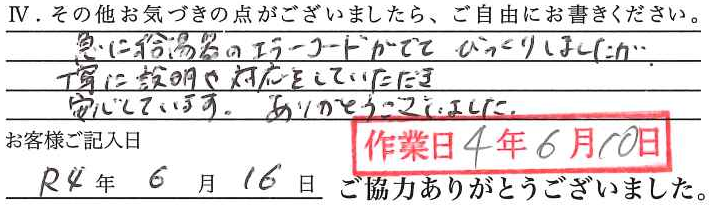 Ⅳ．その他お気づきの点がございましたら、ご自由にお書きください。
急に給湯器のエラーコードがでて びっくりしましたが
丁寧に説明や対応をしていただき
安心しています。 ありがとうございました。
お客様ご記入日
作業日 4年6月10日
R4年 6月16日 ご協力ありがとうございました。